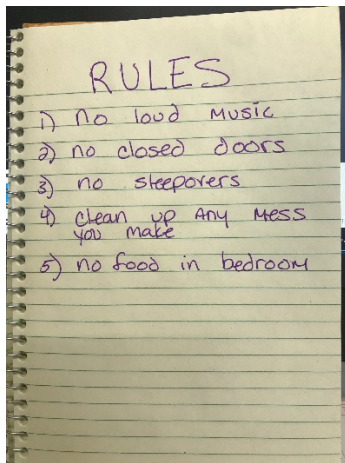 RULES
1) no loud music
2) no closed doors
3) no sleepovers
4) clean up Any mess
you make
5) no food in bedroom